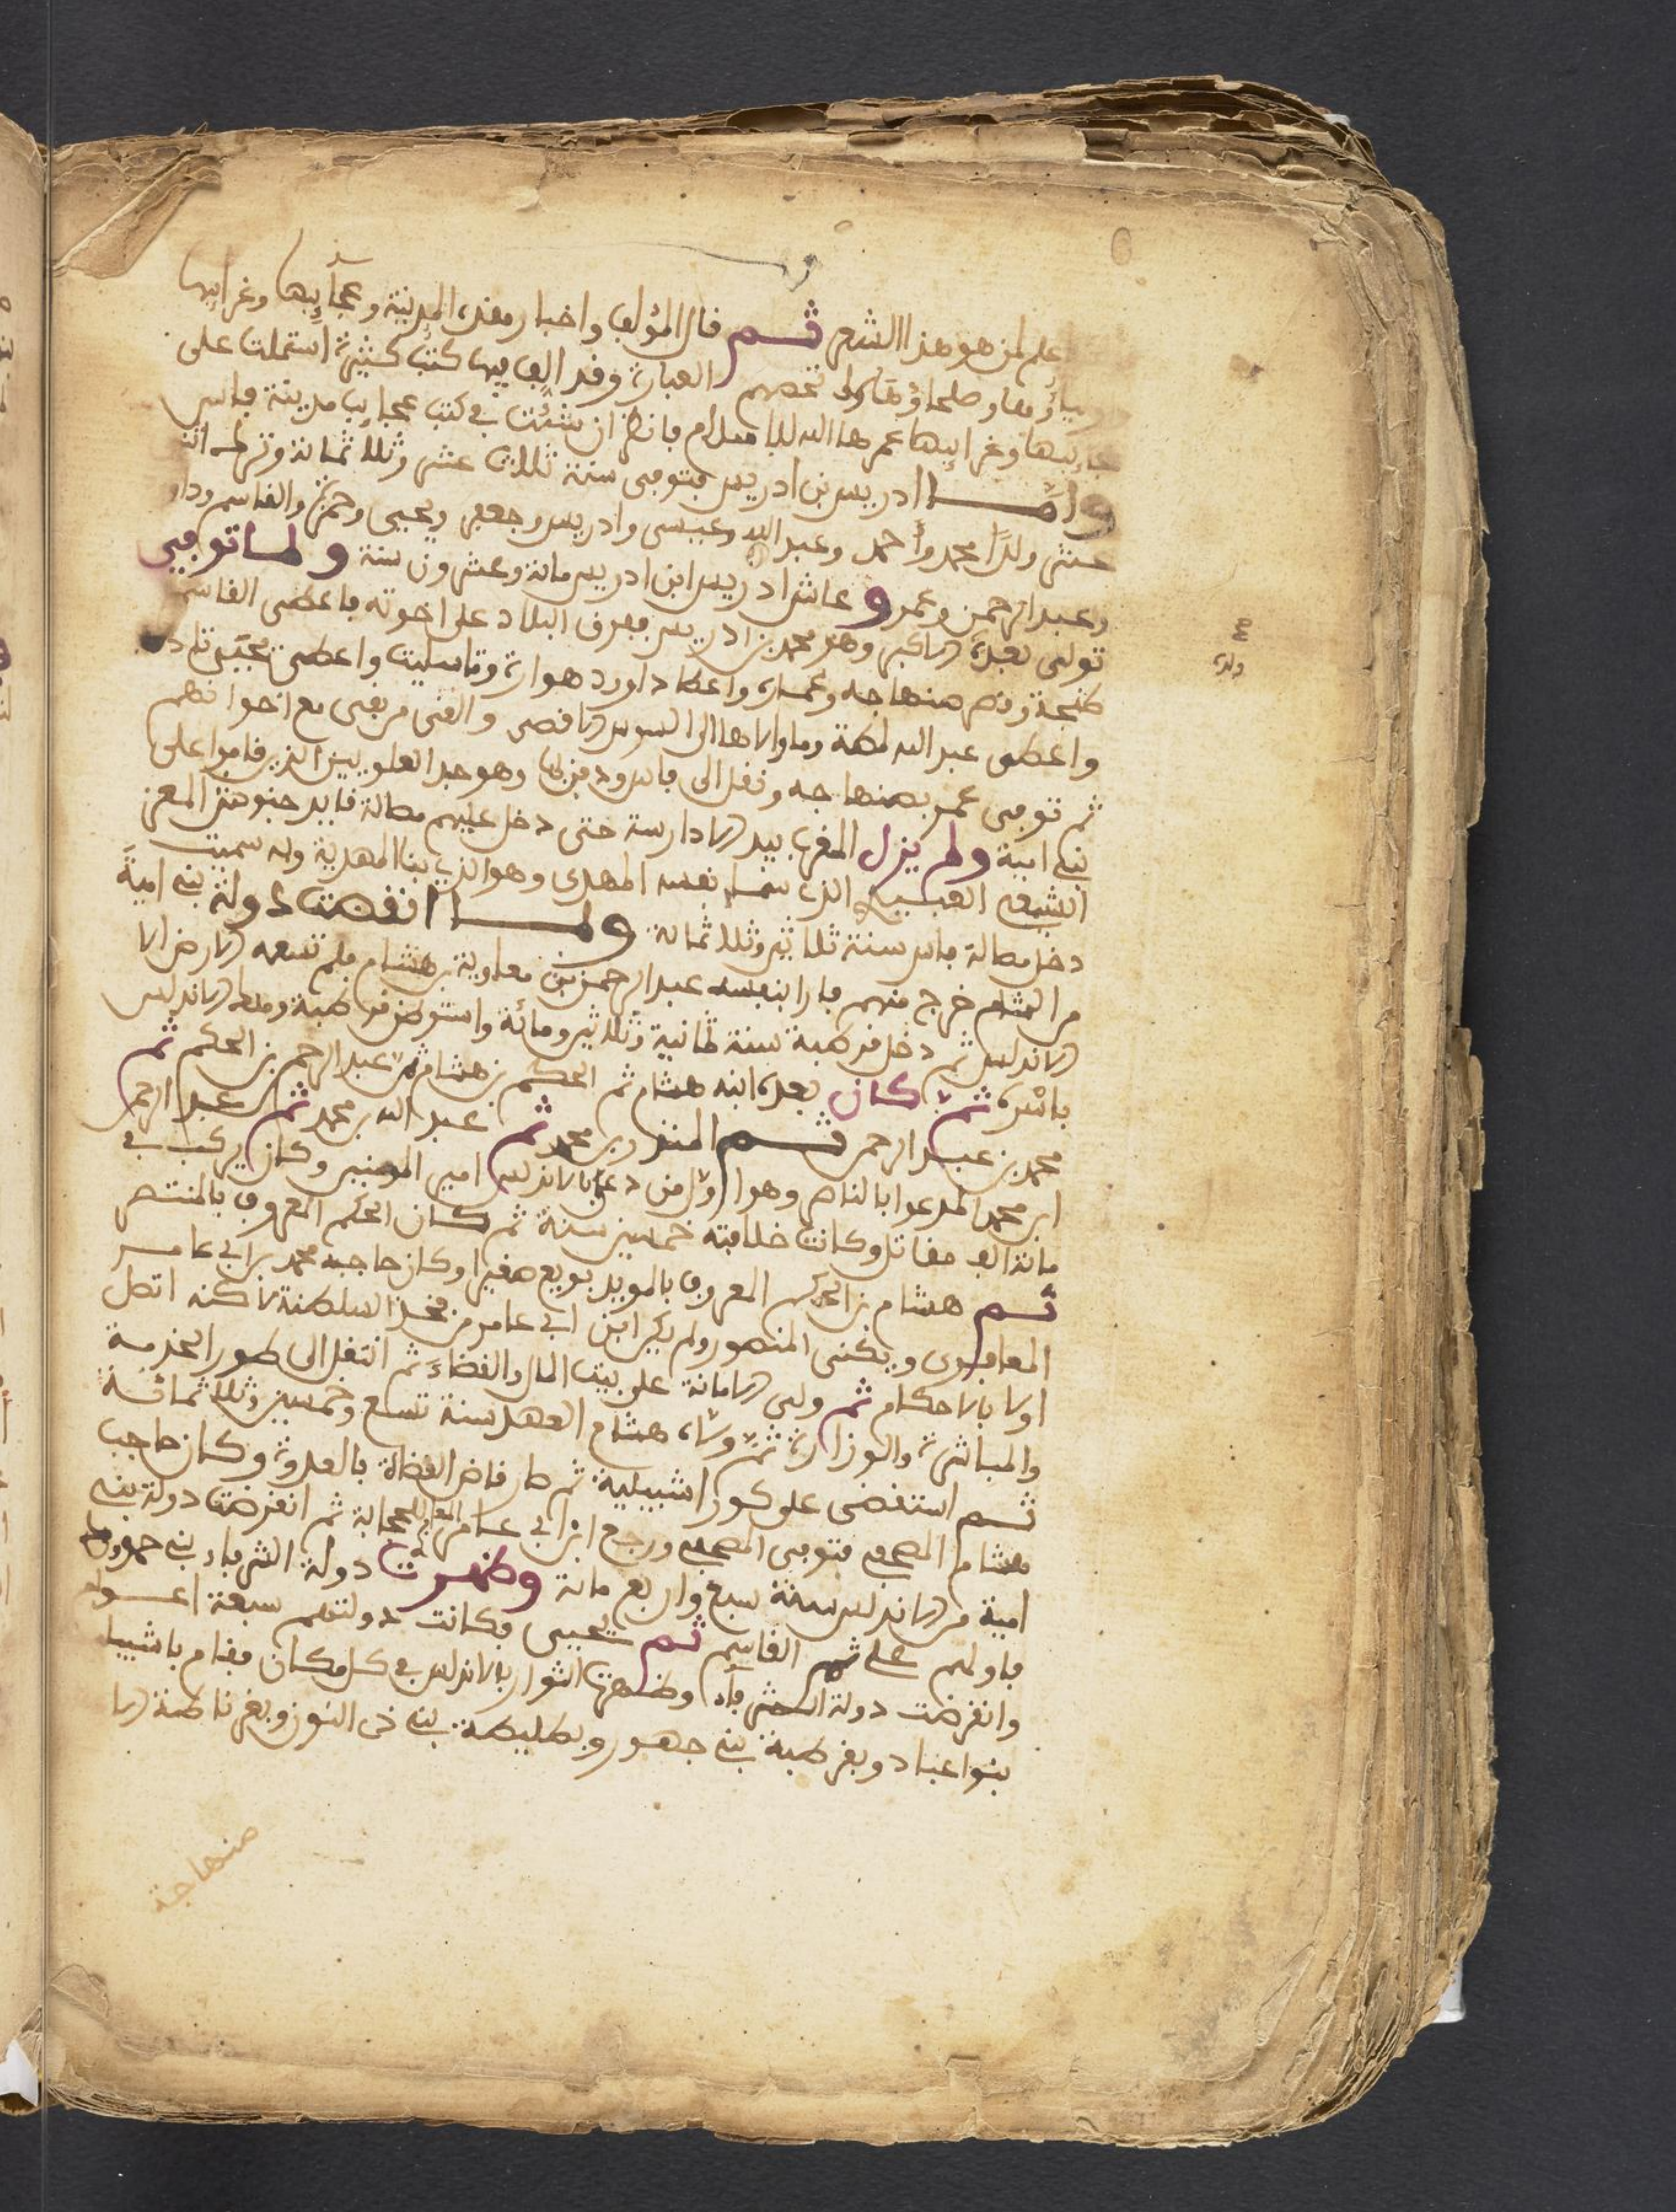 علم لمن هو هذا الشعر ثم قال المؤلف واخبار هذه المدينة وعجآيبها وغرايبها
وصلحاؤها لا تحصيهم العبارة وقد الف فيها كتب كثيرة اشتملت على
عجايبها وغرايبها عمرها الله للاسلام فانظر ان شئت في كتب عجايب مدينة فاس
وامــا ادريس بن ادريس فتوفى سنة ثلاث عشر وثلاثمائة وترك اثنا
عشر ولدًا محمد وأحمد وعبد الله وعيسى وادريس وجعفر ويحيى وحمزة والقاسم وداود
وعبد الرحمن وعمر وعاش ادريس ابن ادريس مائة وعشرون سنة ولما توفى
تولى بعده الاكبر وهو محمد بن ادريس ففرق البلاد على اخوته فاعطى القاسم
طنجة وعمر صنهاجه وغماره واعطا داوود هوارة وتاسليت واعطى يحيى
واعطى عبد الله لمطة وما والاها الى السوس الاقصى والقى من بقى مع اخوانهم
ثم توفى عمر بصنهاجه ونقل الى فاس ودفن بها وهو جد العلويين الذين قاموا على
بني امية ولم يزل المغرب بيد الادارسة حتى دخل عليهم مصالة قايد جنود المعز
الشيعي العبيدي الذي سما نفسه المهدى وهو الذي بنا المهدية وبه سميت
دخل مصالة فاس سنة ثلاثين وثلاثمائة ولمــا انقضت دولة بني اميةَ
من الشام خرج منهم فارا بنفسه عبد الرحمن بن معاوية بن هشام فلم تسعه الارض الا
الاندلس ثم دخل قرطبة سنة ثمانية وثلاثين ومائة واستوطن قرطبة وملك الاندلس
باسره ثم كان بعده ابنه هشام ثم الحكم بن هشام ثم عبد الرحمن بن الحكم ثم
محمد بن عبد الرحمن ثــم المنذر بن محمد ثم عبد الله بن محمد ثم عبد الرحمن
ابن محمد المدعوا بالناصر وهو اول من دعي بالاندلس امير المومنين وكان يركب في
مائة الف مقاتل وكانت خلافته خمسين سنة ثم كان الحكم المعروف بالمنتصر
ثــم هشام بن الحكم المعروف بالمويد بويع صغيرا وكان حاجبه محمد بن ابي عامر
المعافري ويكنى المنصور ولم يكن ابن ابي عامر من السلطنة لاكنه اتصل
اولا بالاحكام ثم ولى الامانة على بيت المال والقضاء ثم انتقل الى طور الخدمة
والمباشرة والوزارة ثم ولاه هشام العهد سنة تسع وخمسين وثلاثمائـة
ثــم استقضى على كور اشبيلية ثم صار قاض القضاة بالعدوة وكان حاجب
هشام المصحفي فتوفى المصحفي ورجع ابن ابي عامر للحجابة ثم انقرضت دولة بني
امية من الاندلس سنة سبع واربع مائة وظهرت دولة الشرفاء بني حمود
فاولهم علي ثم القاسم ثــم يحيى وكانت دولتهم سبعة اعـوام
وانقرضت دولة الشرفآء وظهرت الثوار بالاندلس في كل مكان فقام باشبيليا
بنوا عباد وبقرطبة بني جهور وبطليطة بني ذى النون وبغرناطة
صنهاجة
ولده